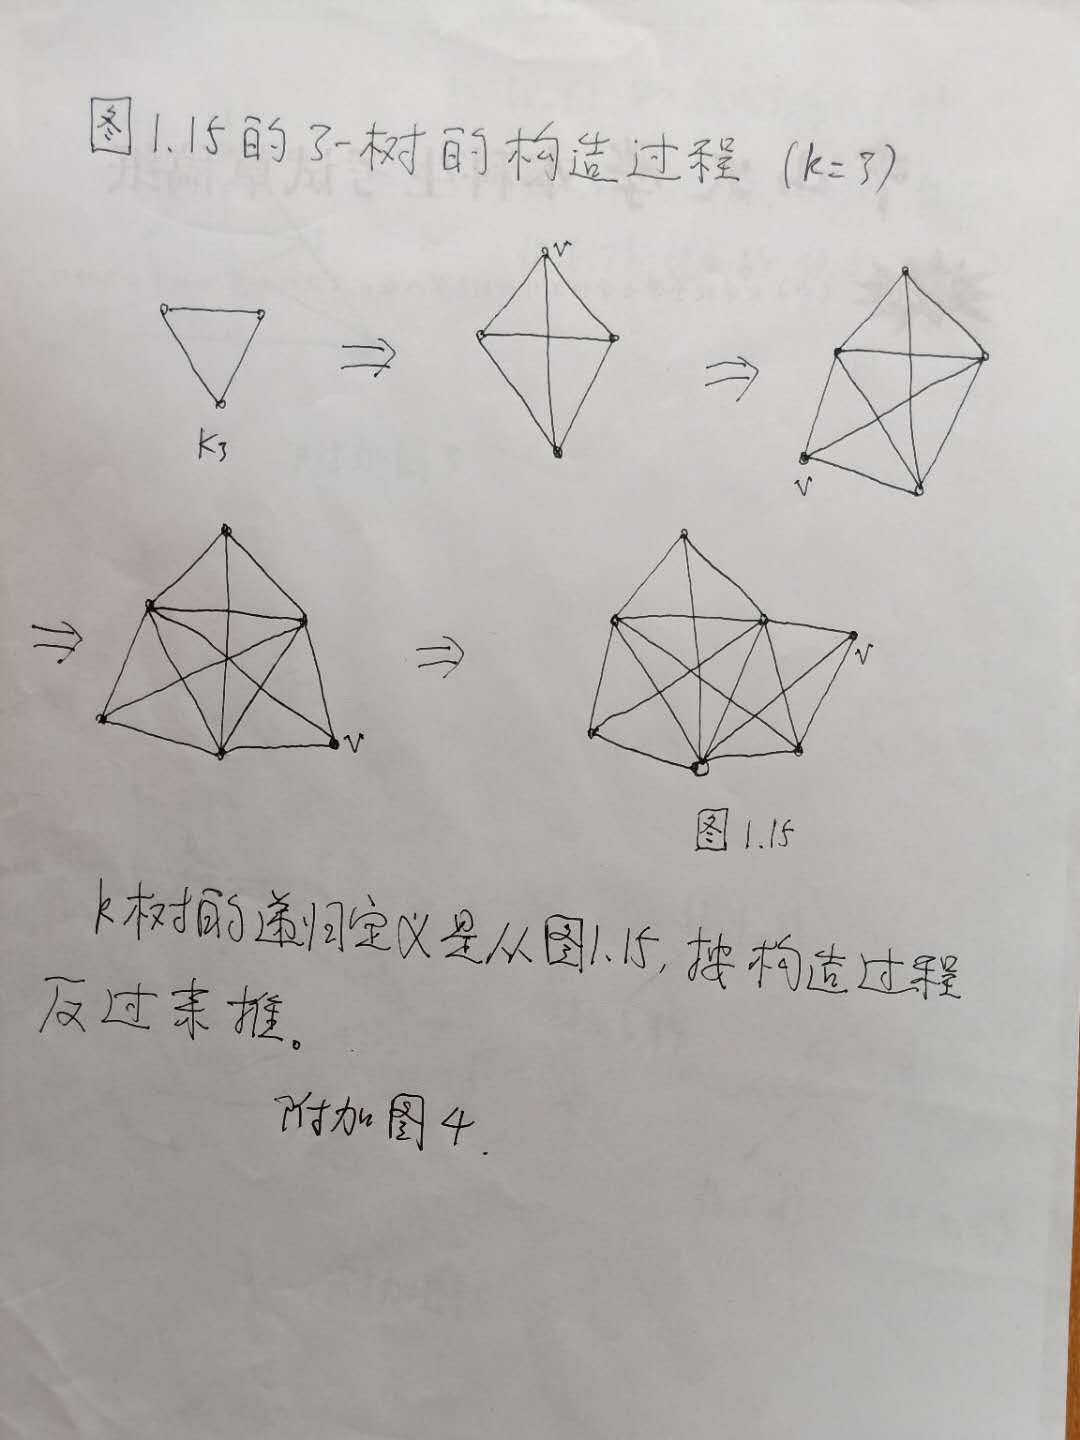 图1.15的3-树的构造过程 (k=3)
v
K3
v
v
v
图1.15
k树的递归定义是从图1.15,按构造过程
反过来推。
附加图4.